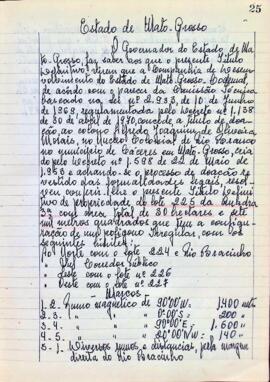 25
Estado de Mato-Grosso
O Governador do Estado de Ma
to-Grosso, faz saber aos que o presente Título
Definitivo, virem que a Companhia de Desen
volvimento do Estado de Mato-Grosso, Codemat
de acordo com o parecer da Comissão Técnica
baseado na Lei nº 2.933, de 10 de Junho
1.969, regulamentada pelo Decreto nº 1.138
de 30 de abril de 1970, concede a título de doa-
ção, ao colono Alfredo Joaquim de Oliveira
Morais, no Núcleo Colonial de Rio Branco
no município de Cáceres em Mato-Grosso, cria
do pelo Decreto nº 1.598 de 22 de Maio de
1.953 e achando-se o processo de doação re-
vestido das formalidades legais, resol-
vem conferir-lhe o presente Título Defini
tivo de propriedade do lote 225 da quadra
com area total de 30 hectares e sete
mil metros quadrados que tem a configura
ção de um polígono Irregular, com os
seguintes limites:
Ao Norte com o lote 224 e Rio Bracinho
" Sul Corredor Público
" Leste com o lote nº 226
" Oeste com o lote nº 227
Marcos:
1. 2. Rumo magnético de 90°00'W. 1.400 mts
2. 3. " " " 0°00'S: 200 "
3. 4. " " " 90°00'E: 1.600 "
4. 5. " " " 20°00'NW: 140 "
5. 1. Diversos rumos e distancias, pela margem
direita do Rio Bracinho